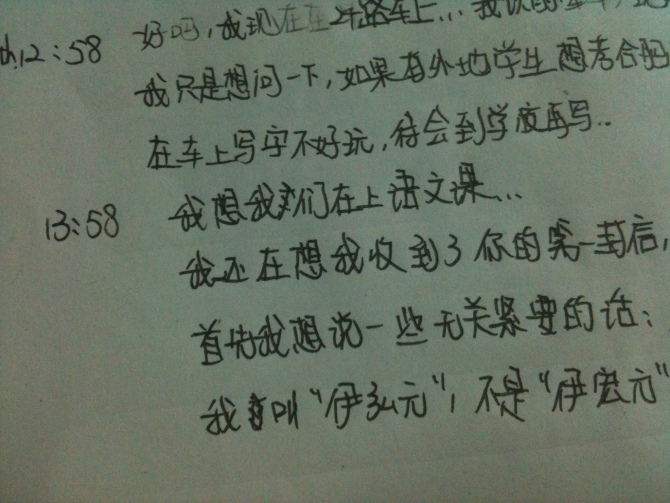 12:58 好吗，我现在在24路车上...我
我只是想问一下，如果有外地学生想考合肥
在车上写字不好玩，待会到学校再写..
13:58 我想我们在上语文课...
我还在想我收到了你的第一封信，
首先我想说一些无关紧要的话：
我叫“伊弘元”，不是“伊宏元”